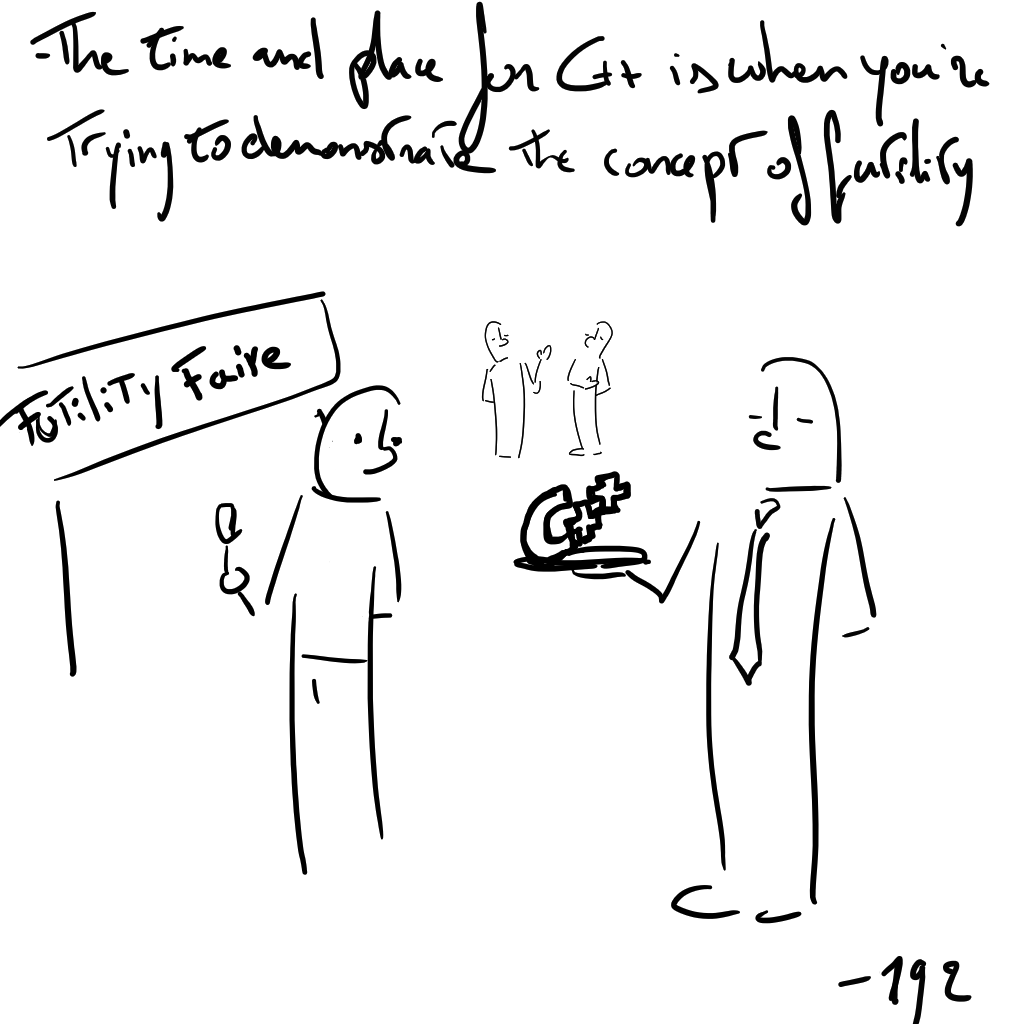 -The time and place for C++ is when you're
Trying to demonstrate the concept of futility
Futility Faire
C++
-192